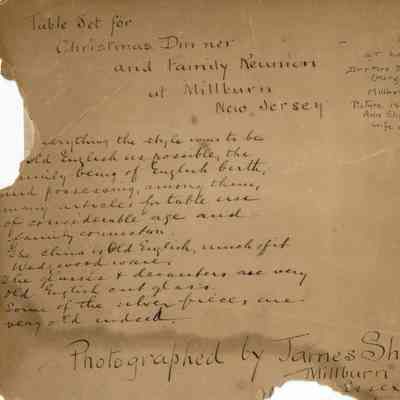 Table Set for
Christmas Dinner
and Family Reunion
at Millburn
New Jersey
everything the style was to be
old English as possible, the
family being of English birth,
and possessing, among them,
many articles for table use
of considerable age and
family connection.
The china is Old English, much of it
Wedgwood ware.
The glasses & decanters are very
old English cut glass.
Some of the silver pieces are
very old indeed.
Photographed by James Sh
Millburn
Essex
at
Millbur
Picture
Ann Sh
wife